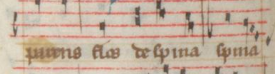 parens flos de spina spina